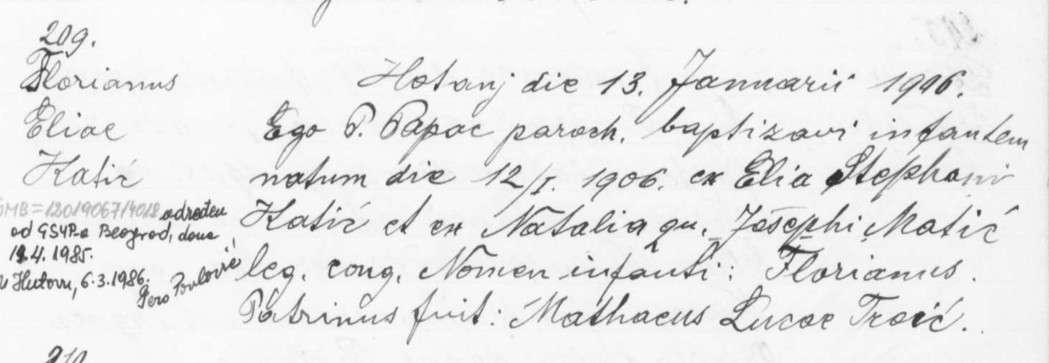 209.
Florianus
Eliae
Katić
JMB=1201906714018 određen
od GSUPa Beograd, dana
19.4.1985.
U Hutovu, 6.3.1986. Pero Pavlović
Hotanj die 13. Januarii 1906.
Ego P. Papac paroch. baptizavi infantem
natum die 12/I. 1906. ex Elia Stephani
Katić et ex Natalia qu. Josephi Matić
leg. conj. Nomen infanti: Florianus.
Patrinus fuit: Mathaeus Lucae Troić.
210.